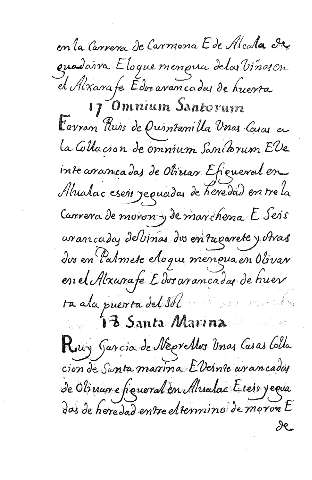 en la Carrera de Carmona E de Alcala de
guadaira E loque mengua delas Viñas en
el Alxarafe E dos arancadas de huerta
17 Omnium Santorum
Ferran Ruis de Quintanilla Unas Casas a
la Collacion de omnium Santorum E Ve
inte arancadas de Olivar E figueral en
Alualac e seis yeguadas de heredad entre la
Carrera de moron y de marchena E Seis
arancadas de Vinas dos en tugarete y otras
dos en Palmete eloque mengua en Olivar
en el Alxarafe E dos arancadas de huer
ta ala puerta del Sol
18 Santa Marina
Ruy Garcia de Negrellos Unas Casas Colla
cion de Santa marina E Veinte arancadas
de Olivar e figueral en Alualac E seis yegua
das de heredad entre el termino de moron E
de